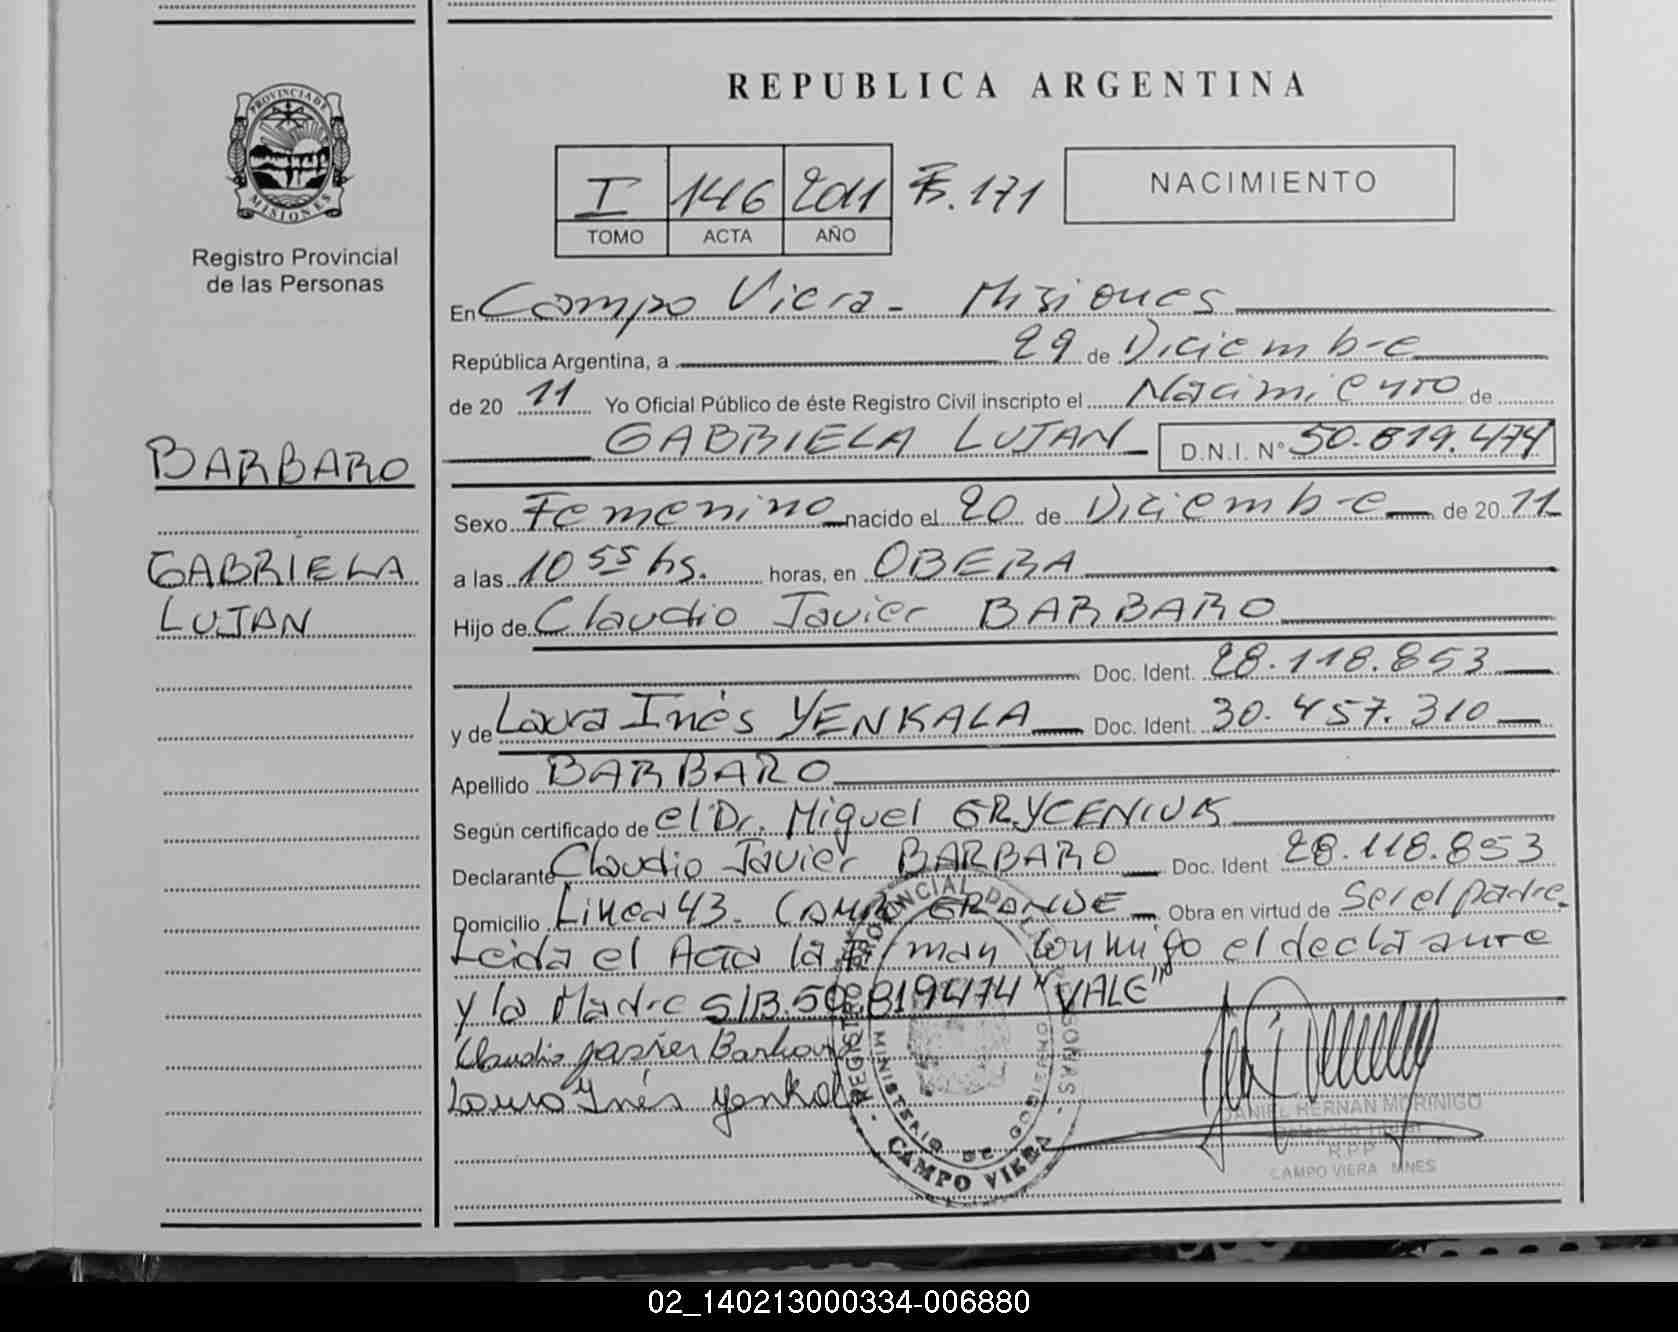 REPUBLICA ARGENTINA
PROVINCIA DE
MISIONES
Registro Provincial
de las Personas
I 146 2011 F. 171
TOMO ACTA AÑO
NACIMIENTO
En Campo Viera - Misiones
República Argentina, a 29 de Diciembre
de 20 11 Yo Oficial Público de éste Registro Civil inscripto el Nacimiento de
GABRIELA LUJAN D.N.I. N° 50.819.474
BARBARO
GABRIELA
LUJAN
Sexo Femenino nacido el 20 de Diciembre de 20 11
a las 10 55 hs. horas, en OBERA
Hijo de Claudio Javier BARBARO
Doc. Ident. 28.118.853
y de Laura Inés YENKALA Doc. Ident. 30.457.310
Apellido BARBARO
Según certificado de el Dr. Miguel GRYCENIUK
Declarante Claudio Javier BARBARO Doc. Ident 28.118.853
Domicilio Linea 43. CAMPO GRANDE Obra en virtud de Ser el padre.
Leida el Acta la firman conmigo el declarante
y la Madre S/B.50.819474 "VALE"
Claudio Javier Barbaro
Laura Inés Yenkala
REGISTRO PROVINCIAL DE LAS PERSONAS
MINISTERIO DE GOBIERNO
CAMPO VIERA
DANIEL HERNAN MORINIGO
Delegado Titular
R.P.P
CAMPO VIERA MNES
02_140213000334-006880